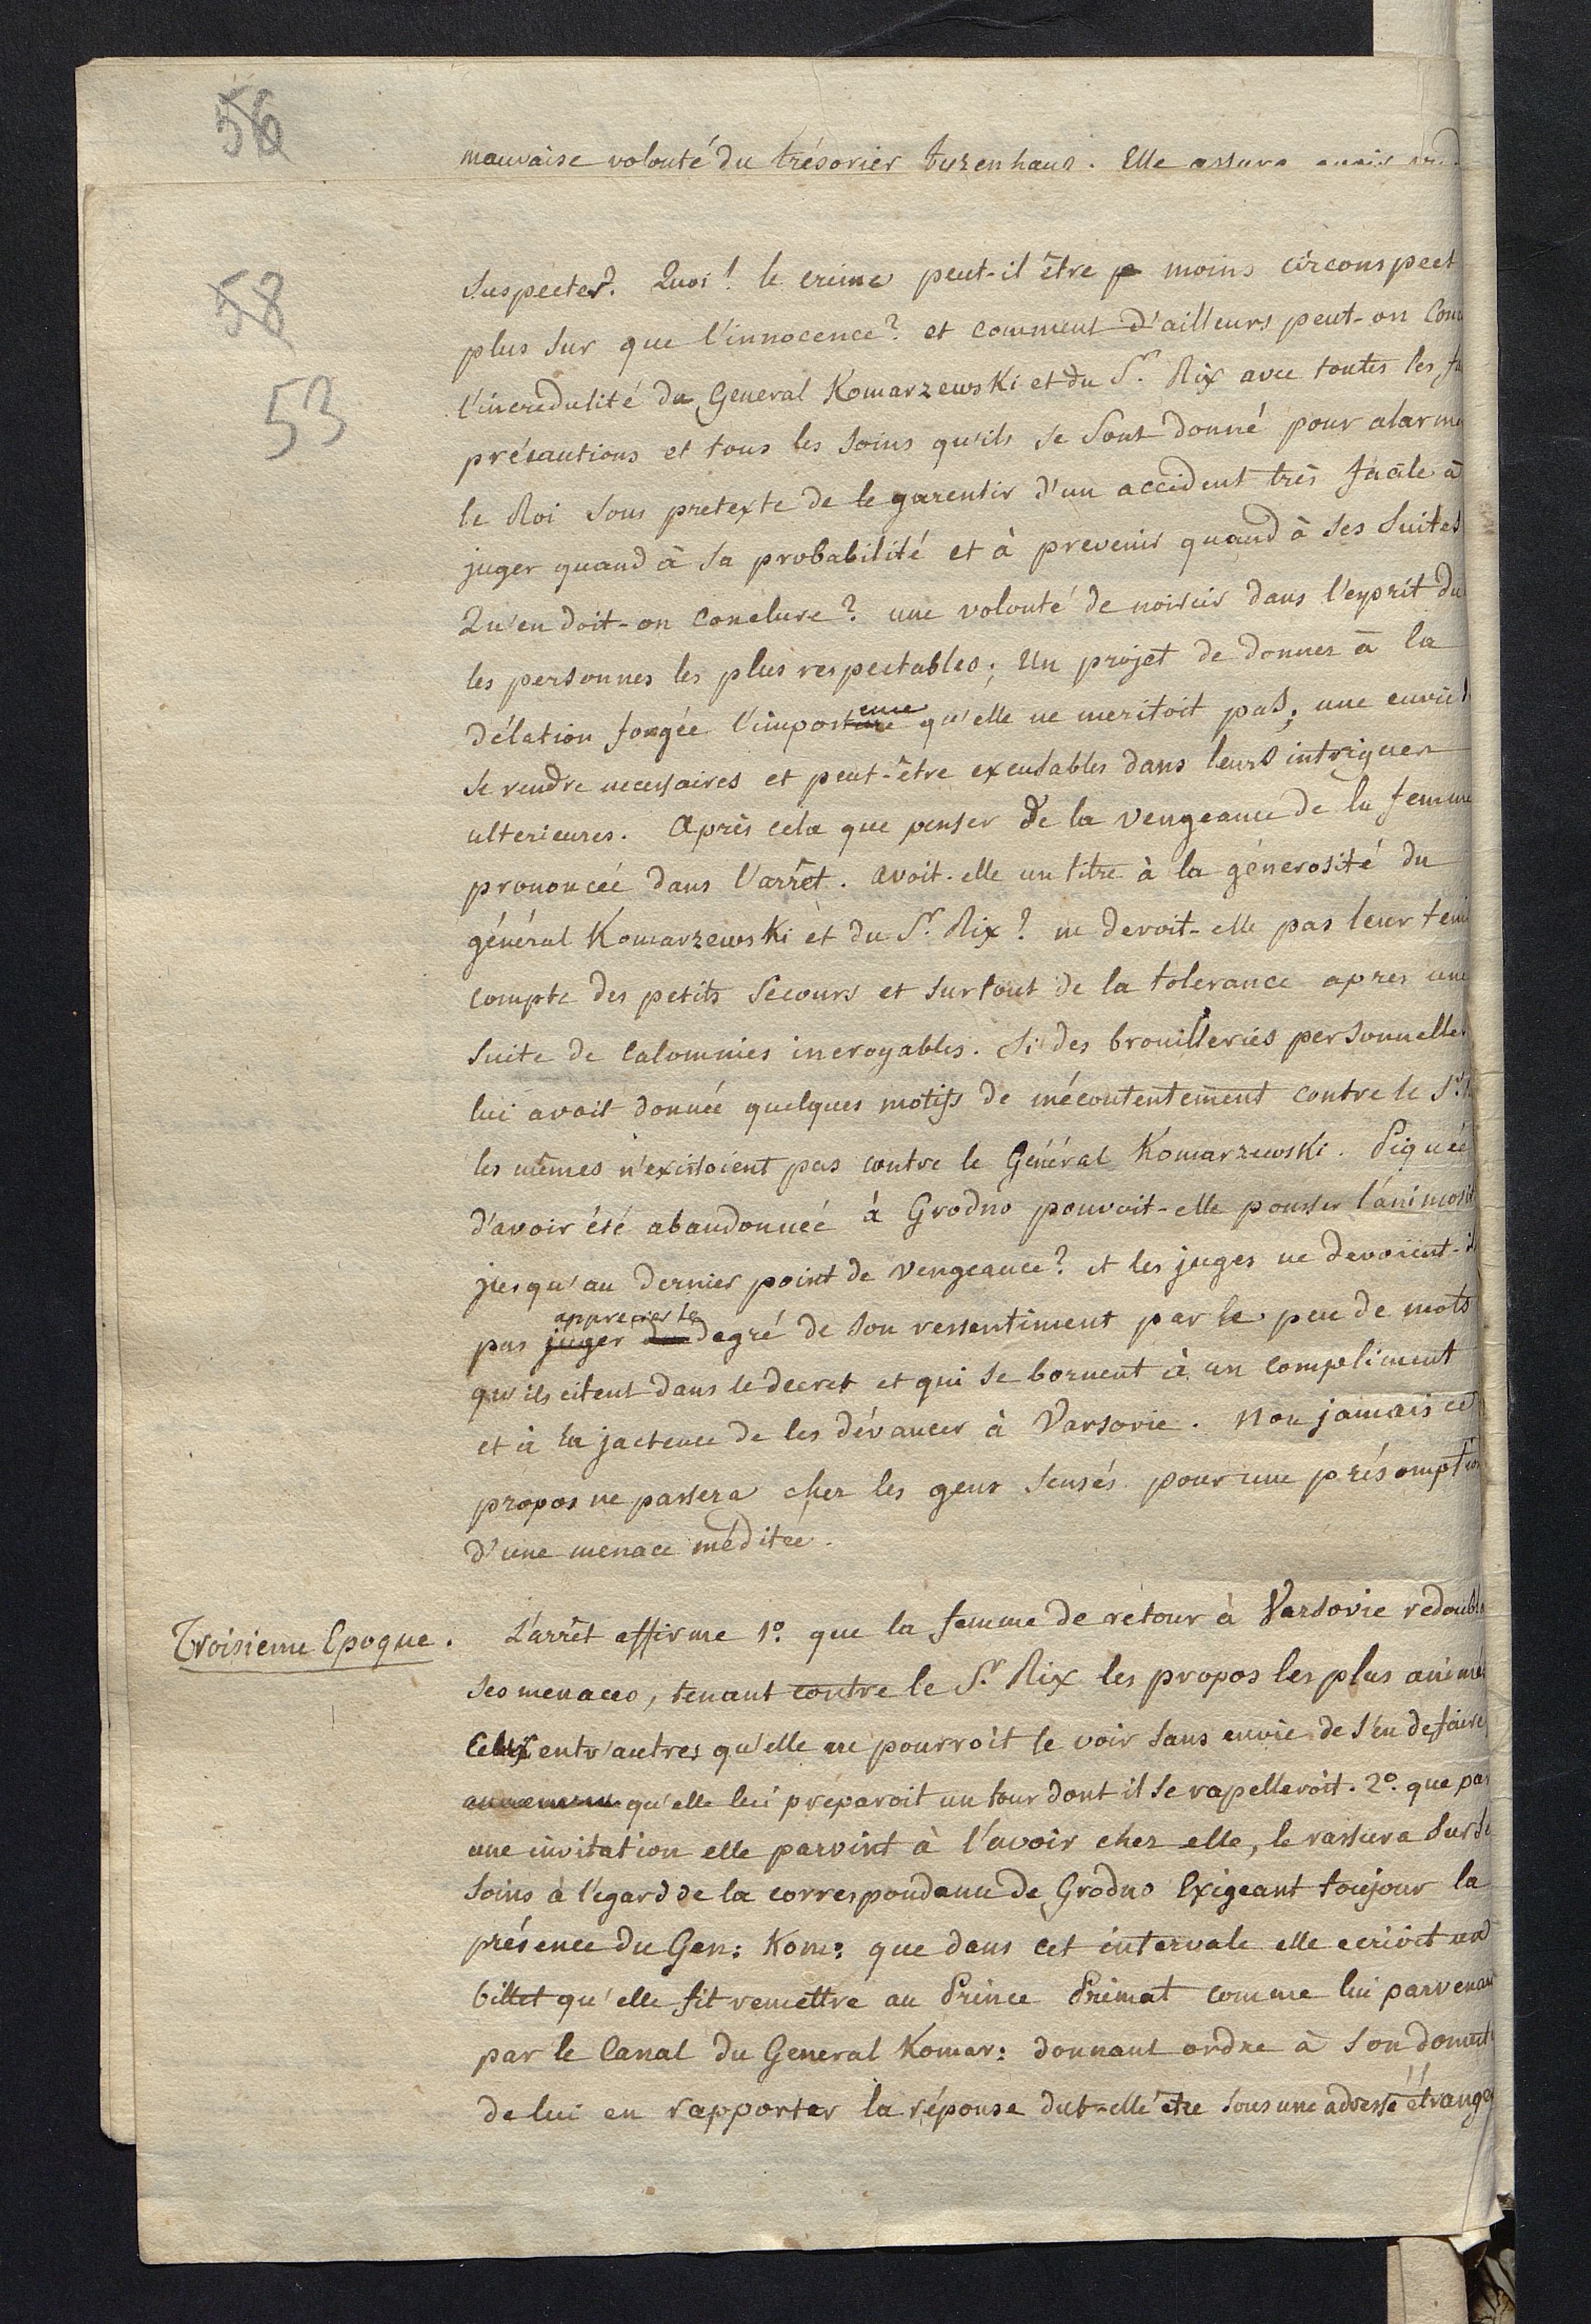 56
mauvaise volonté du trésorier Tyzenhaus. Elle assura
58
53
suspecter? Quoi! le crime peut-il être moins circonspect
plus sur que l'innocence? et comment d'ailleurs peut-on
l'incredulité du General Komarzewski et du Sr. Rix avec toutes les
précautions et tous les soins qu'ils se sont donné pour alarme
le Roi sous pretexte de le garentir d'un accident très facile à
juger quand à sa probabilité et à prevenir quand à ses suites
Qu'en doit-on conclure? une volonté de noircir dans l'esprit du
les personnes les plus respectables; Un projet de donner à la
délation forgée l'importence qu'elle ne meritoit pas; une envie
se rendre necessaires et peut-être excusables dans leurs intrigues
ulterieures. Après cela que penser de la vengeance de la femme
prononcée dans l'arrêt. avoit-elle un titre à la génerosité du
général Komarzewski et du Sr. Rix? ne devoit-elle pas leur teni
compte des petits secours et surtout de la tolerance apres une
suite de calomnies incroyables. Si des brouilleries personnelles
lui avoit donnée quelques motifs de mécontentement contre le Sr.
les mêmes n'existoient pas contre le Général Komarzewski. Piquée
d'avoir été abandonnée à Grodno pouvoit-elle pousser l'animosit
jusqu'au dernier point de vengeance? et les juges ne devoient-i
apprecier le
pas juger du degré de son ressentiment par le peu de mots
qu'ils citent dans le decret et qui se bornent à un compliment
et à la jactence de les dévancer à Varsovie. Non jamais ce
propos ne passera chez les gens sensés pour une présomption
d'une menace méditée.
Troisieme Epoque. L'arrêt affirme 1º. que la femme de retour à Varsovie redoubla
ses menaces, tenant contre le Sr. Rix les propos les plus animés
entr'autres qu'elle ne pourroit le voir sans envie de s'en defaire
qu'elle lui préparoit un tour dont il se rapelleroit. 2º. que par
une invitation elle parvint à l'avoir chez elle, le rassura sur
soins à l'egard de la correspondence de Grodno Exigeant toujour la
présence du Gen: Kom: que dans cet intervale elle ecrivit un
billet qu'elle fit remettre au Prince Primat comme lui parvenan
par le Canal du General Komar: donnant ordre à son domest
de lui en rapporter la réponse dut-elle être sous une adresse étranger